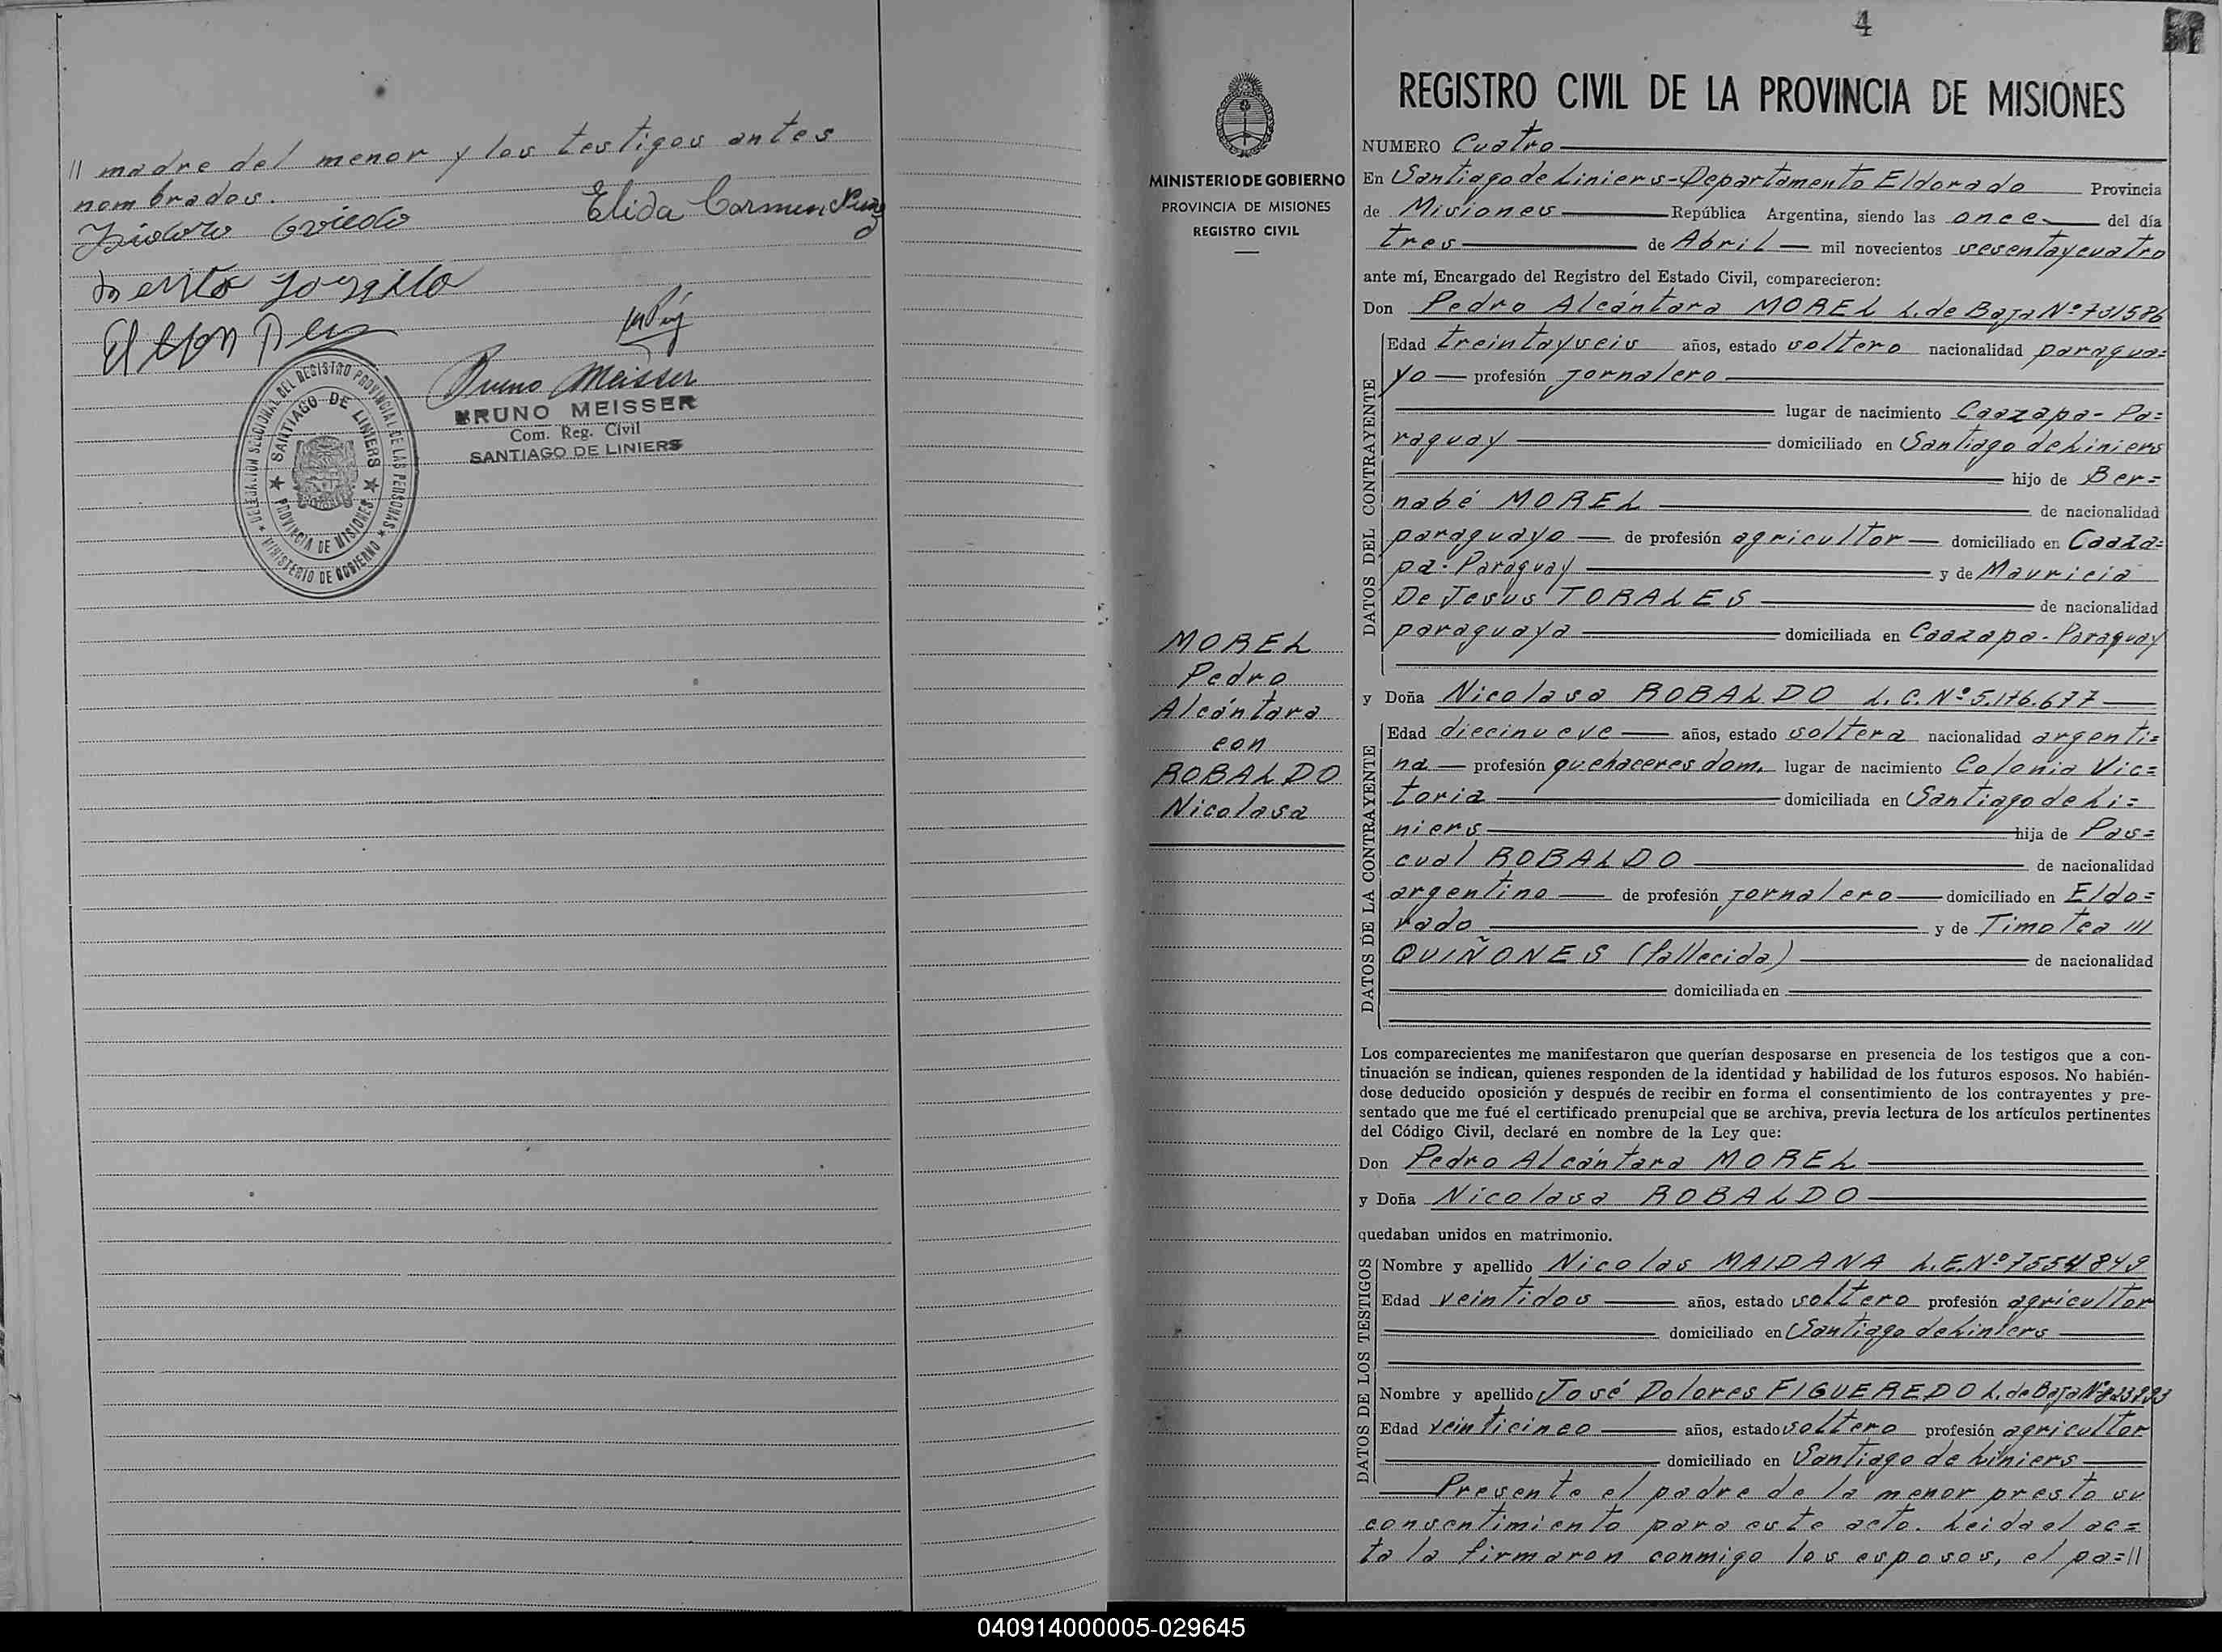 // madre del menor y los testigos antes
nombrados.
Isidoro Oviedo
Elida Carmen
Bruno Meisser
BRUNO MEISSER
Com. Reg. Civil
SANTIAGO DE LINIERS
DELEGACION SECCIONAL DEL REGISTRO PROVINCIAL DE LAS PERSONAS
MINISTERIO DE GOBIERNO
SANTIAGO DE LINIERS
PROVINCIA DE MISIONES
4
MINISTERIO DE GOBIERNO
PROVINCIA DE MISIONES
REGISTRO CIVIL
MOREL
Pedro
Alcántara
con
ROBALDO
Nicolasa
REGISTRO CIVIL DE LA PROVINCIA DE MISIONES
NUMERO Cuatro
En Santiago de Liniers-Departamento Eldorado Provincia
de Misiones República Argentina, siendo las once del día
tres de Abril mil novecientos sesentaycuatro
ante mí, Encargado del Registro del Estado Civil, comparecieron:
Don Pedro Alcántara MOREL L. de Baja Nº 731586
DATOS DEL CONTRAYENTE
Edad treintayseis años, estado soltero nacionalidad paragua=
yo profesión jornalero
lugar de nacimiento Caazapa- Pa=
raguay domiciliado en Santiago de Liniers
hijo de Ber=
nabé MOREL de nacionalidad
paraguayo de profesión agricultor domiciliado en Caaza=
pa- Paraguay y de Mauricia
De Jesus TORALES de nacionalidad
paraguaya domiciliada en Caazapa- Paraguay
y Doña Nicolasa ROBALDO L. C. Nº 5.176.677
DATOS DE LA CONTRAYENTE
Edad diecinueve años, estado soltera nacionalidad argenti=
na profesión quehaceres dom. lugar de nacimiento Colonia Vic=
toria domiciliada en Santiago de Li=
niers hija de Pas=
cual ROBALDO de nacionalidad
argentino de profesión jornalero domiciliado en Eldo=
rado y de Timotea ///
QUIÑONES (fallecida) de nacionalidad
domiciliada en
Los comparecientes me manifestaron que querían desposarse en presencia de los testigos que a con-
tinuación se indican, quienes responden de la identidad y habilidad de los futuros esposos. No habién-
dose deducido oposición y después de recibir en forma el consentimiento de los contrayentes y pre-
sentado que me fué el certificado prenupcial que se archiva, previa lectura de los artículos pertinentes
del Código Civil, declaré en nombre de la Ley que:
Don Pedro Alcántara MOREL
y Doña Nicolasa ROBALDO
quedaban unidos en matrimonio.
DATOS DE LOS TESTIGOS
Nombre y apellido Nicolas MAIDANA L.E.Nº 7554849
Edad veintidos años, estado soltero profesión agricultor
domiciliado en Santiago de Liniers
Nombre y apellido José Dolores FIGUEREDO L. de Baja
Edad veinticinco años, estado soltero profesión agricultor
domiciliado en Santiago de Liniers
Presente el padre de la menor presto su
consentimiento para este acto. Leida el ac=
ta la firmaron conmigo los esposos, el pa=//
040914000005-029645